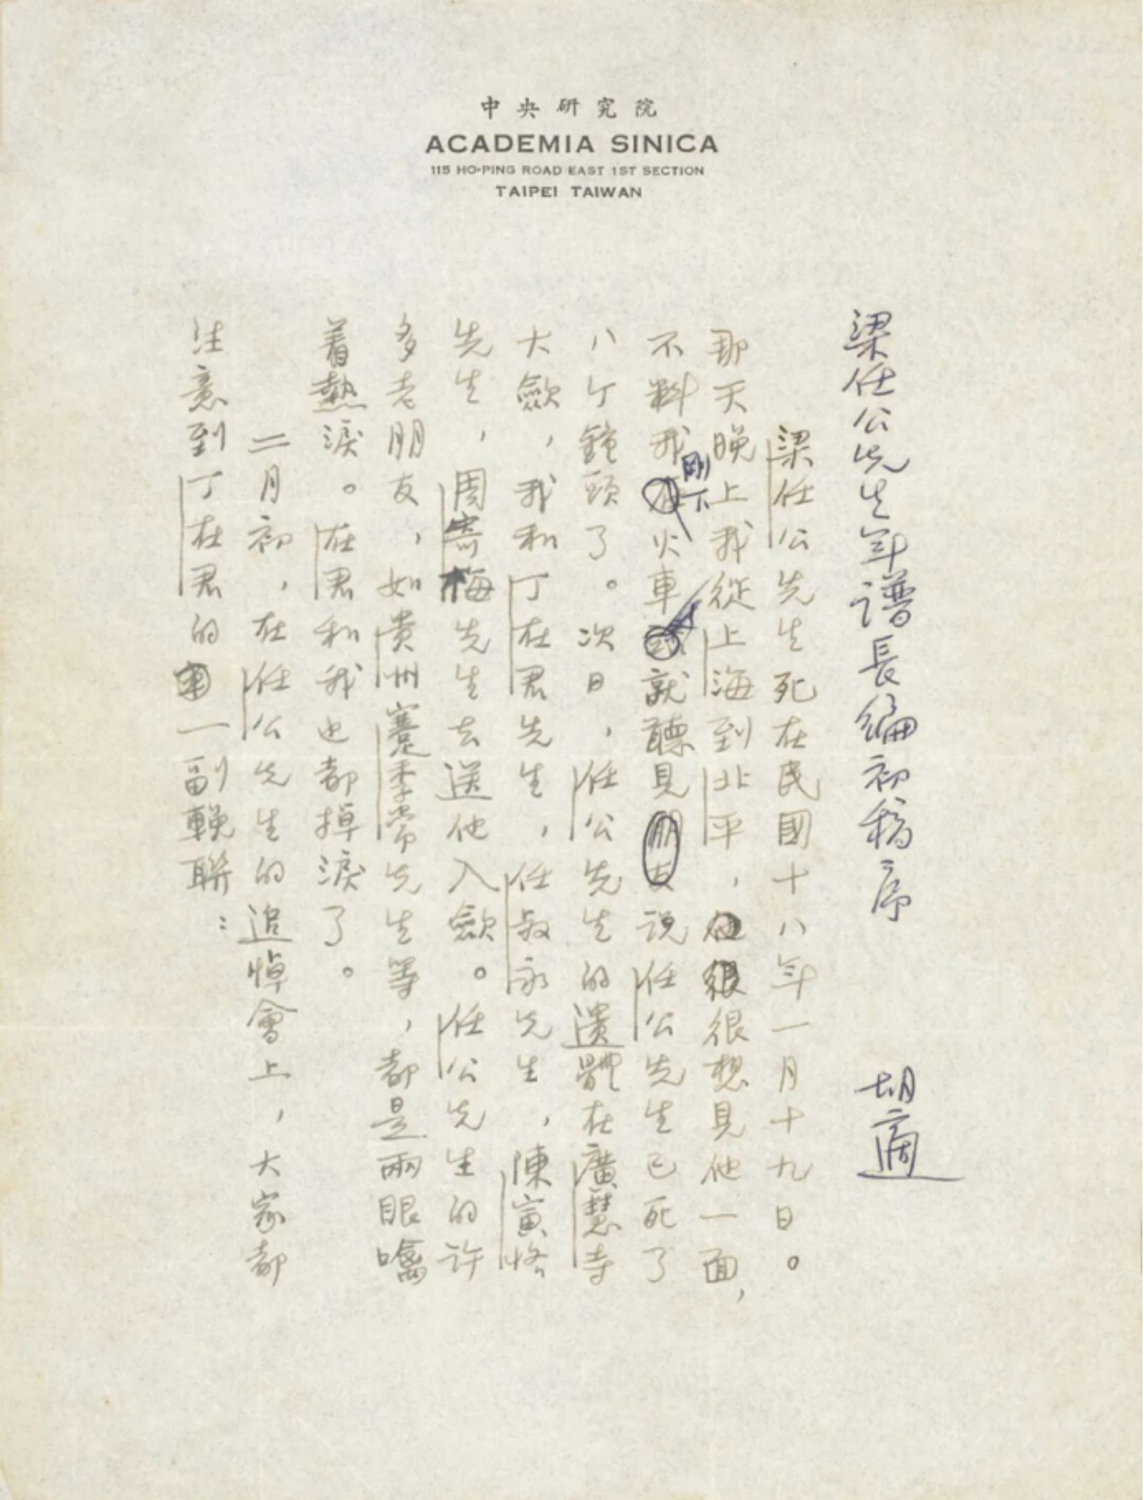 中央研究院
ACADEMIA SINICA
115 HO-PING ROAD EAST 1ST SECTION
TAIPEI TAIWAN
梁任公先生年譜長編初稿序 胡適
梁任公先生死在民國十八年一月十九日。
那天晚上我從上海到北平，很想見他一面，
不料我剛下火車就聽見朋友说任公先生已死了
八个鐘頭了。次日，任公先生的遺體在廣慧寺
大歛，我和丁在君先生，任叔永先生，陳寅恪
先生，周寄梅先生去送他入歛。任公先生的许
多老朋友，如貴州蹇季常先生等，都是兩眼噙
着熱淚。在君和我也都掉淚了。
二月初，在任公先生的追悼會上，大家都
注意到丁在君的一副輓聯：